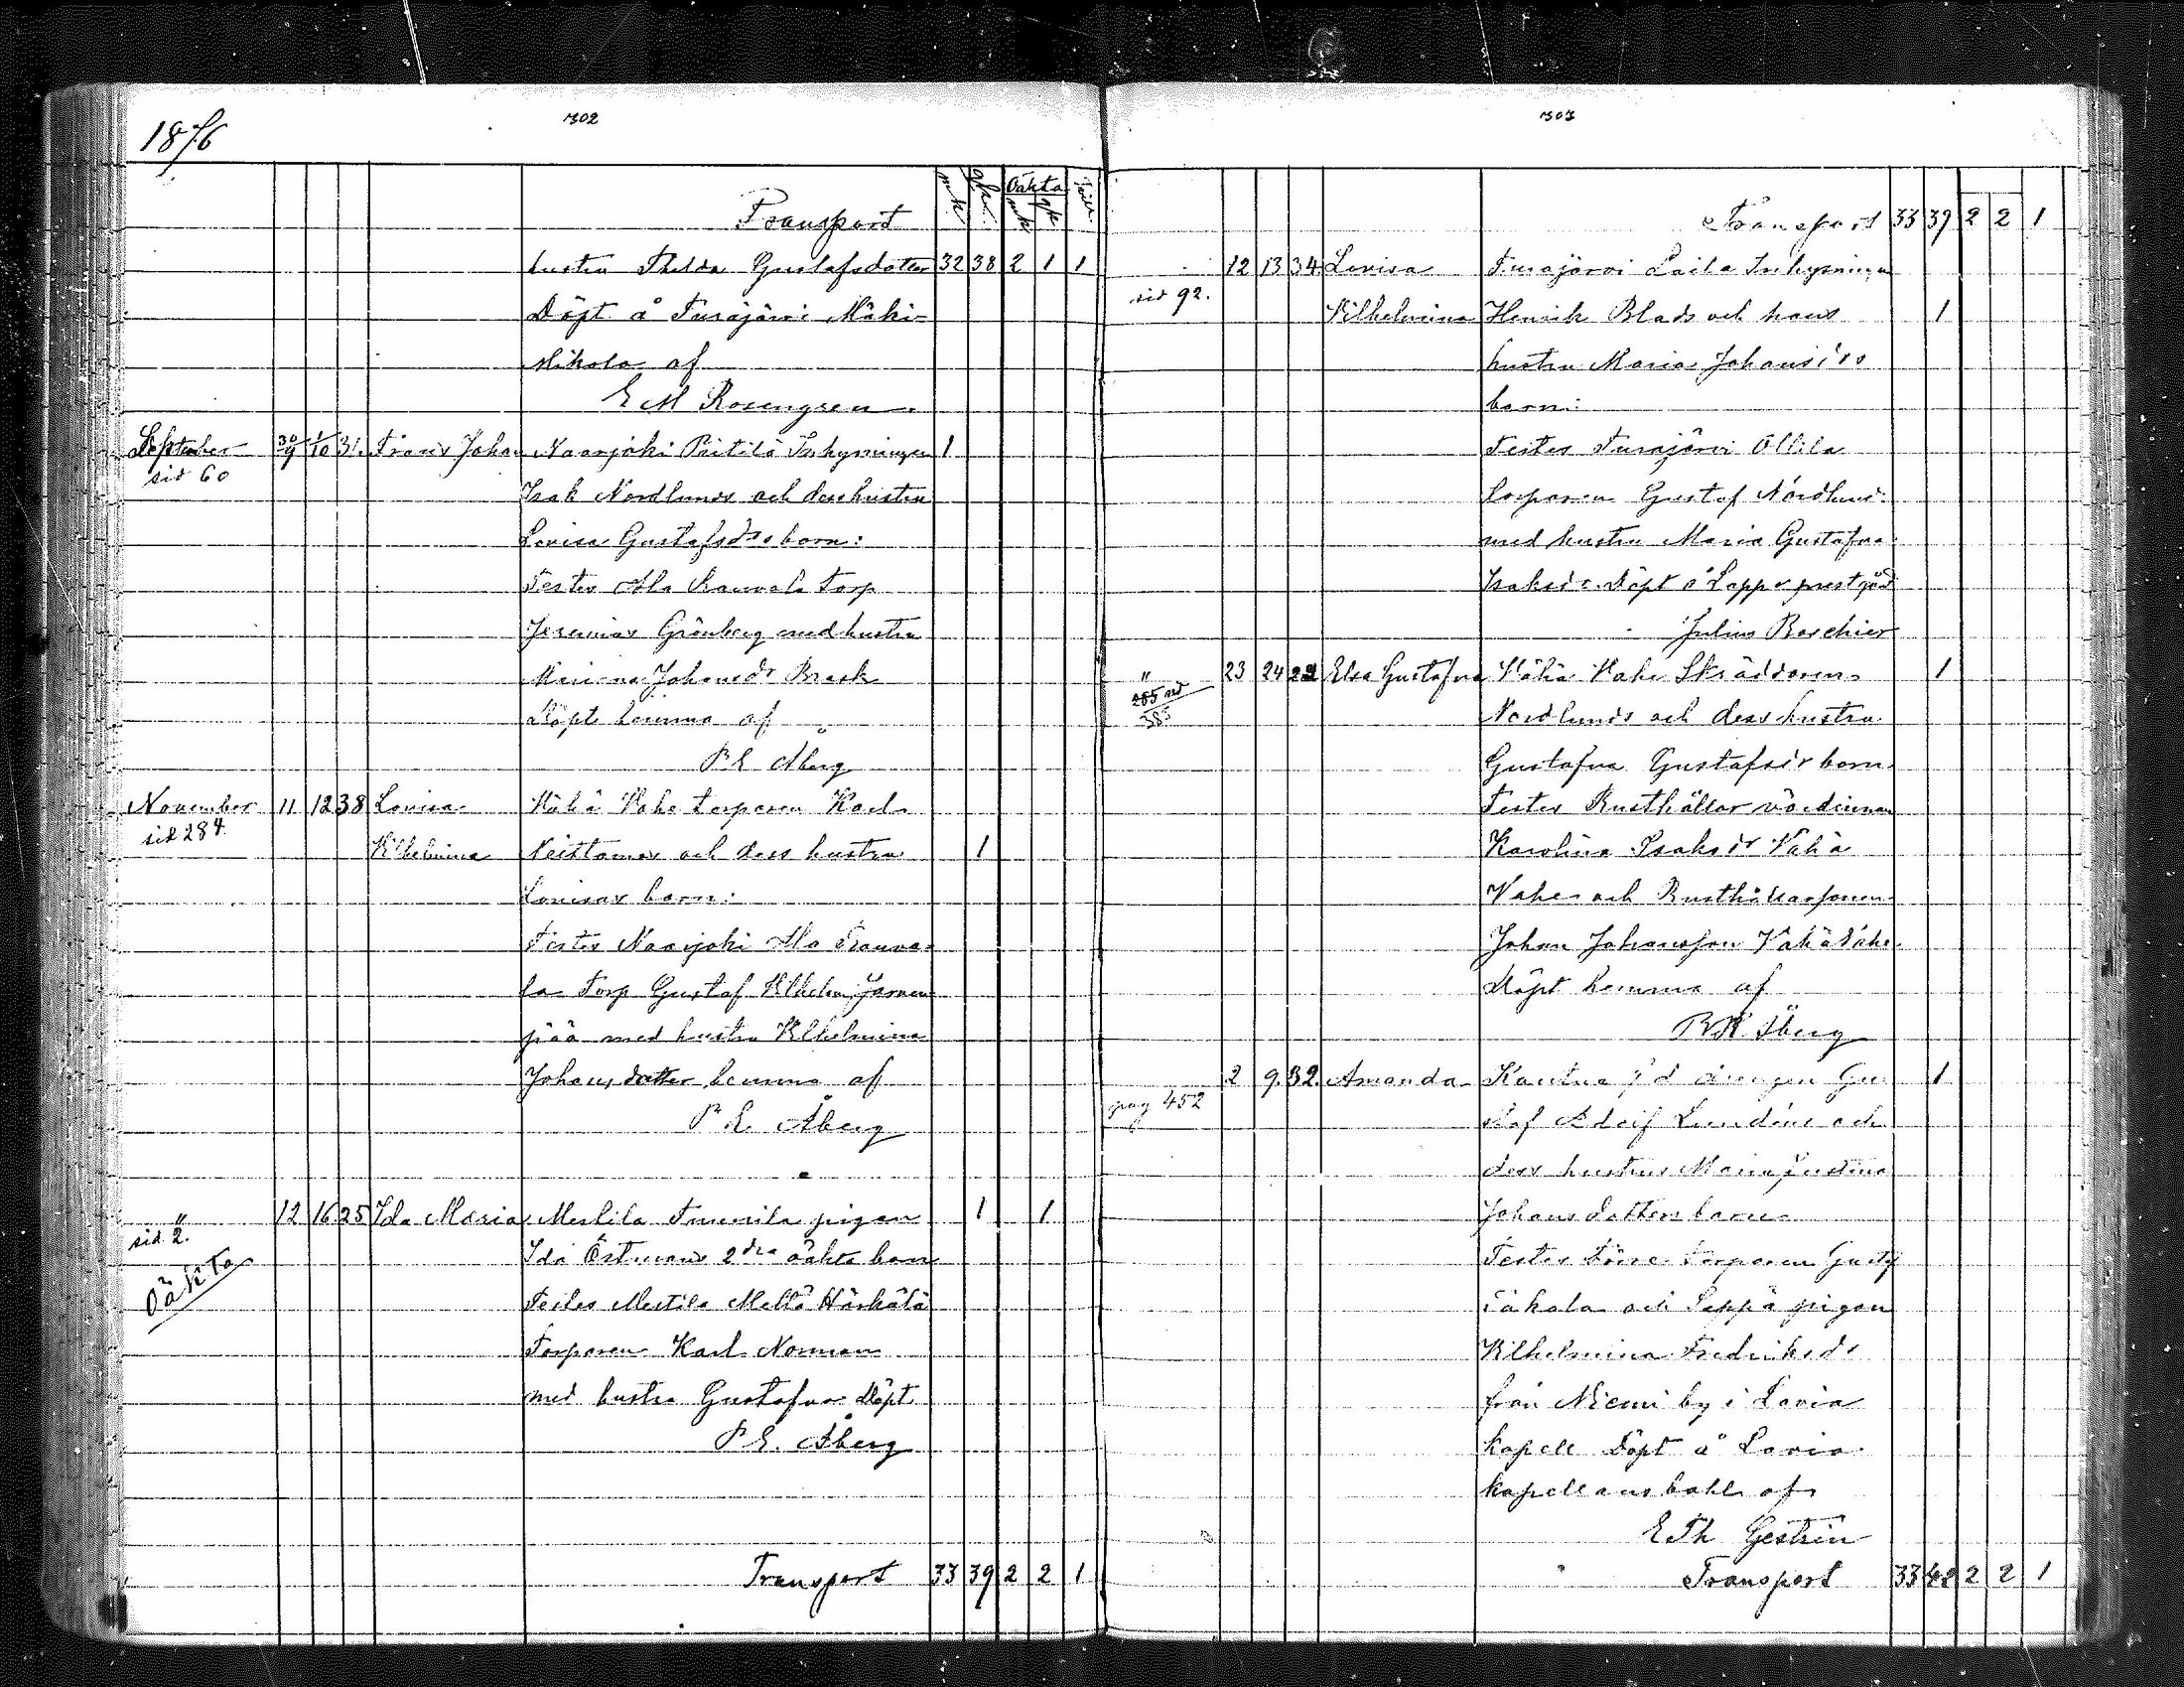 1876
302
mk qk Oäkta mk qk
Transport
hustru Thilda Gustafsdotter 32 38 2 1 1
Döpt å Turajärvi Mäki-
Mikola af
E M Rosengren.
September 30/9 1/10 31. Frans Johan Naarjoki Pietilä Inhysningen 1
sid 60
Isak Nordlunds och dess hustru
Lovisa Gustafsdrs barn:
Testes Ala Rauvola Torp
Jeremias Grönberg med hustru
Johansdr Brask
Döpt hemma af
P E Åberg
November 11 12 38 Lovisa Vähä Vahe torparen Karl
sid 284.
Vilhelmina Neistamos och dess hustru 1
Lovisas barn:
Testes Naarjoki Ala Rauvo-
la Torp Gustaf Vilhelm Järven
pää med hustru Vilhelmina
Johansdotter hemma af
P E Åberg
" 12 16 25 Ida Maria Mestilä Tuomila pigan 1 1
sid 2.
Ida Östmans 2dra oäkta barn
Oäkta
Testes Mestilä Mellä Härkälä
Torparen Karl Norman
med hustru Gustafva Döpt
P E. Åberg
Transport 33 39 2 2 1
303
Transport 33 39 2 2 1
12 13 34. Lovisa Turajärvi Laila Inhysningen
sid 92.
Vilhelmina Henrik Blads och hans 1
hustru Maria Johansdrs
barn:
Testes Turajärvi Ollila
torparen Gustaf Nordlund
med hustru Maria Gustafva
Isaksdr. Döpt å Lappo prestgård
Julius Boschier
" 23 24 Elsa Gustafva Vähä Vahe Skräddaren 1
285
385
Nordlunds och dess hustru
Gustafva Gustafsdr barn.
Testes Rusthållar värdinnan
Karolina Isaksdr Vähä
Vahe och Rusthållarsonen
Johan Johansson Vähä Vahe
Döpt hemma af
Åberg
2 9. 32. Amanda Kautua f d drengen Gu- 1
pag 452
staf Adolf Lundéns och
dess hustrus Maria Justina
Johansdotters barn
Testes torparen Gustaf
och Seppä pigan
Vilhelmina Fredriksdr
från Niemi by i Lavia
kapell Döpt å Lavia
kapellansbohl af
E Th Gestrin
Transport 33 42 2 2 1